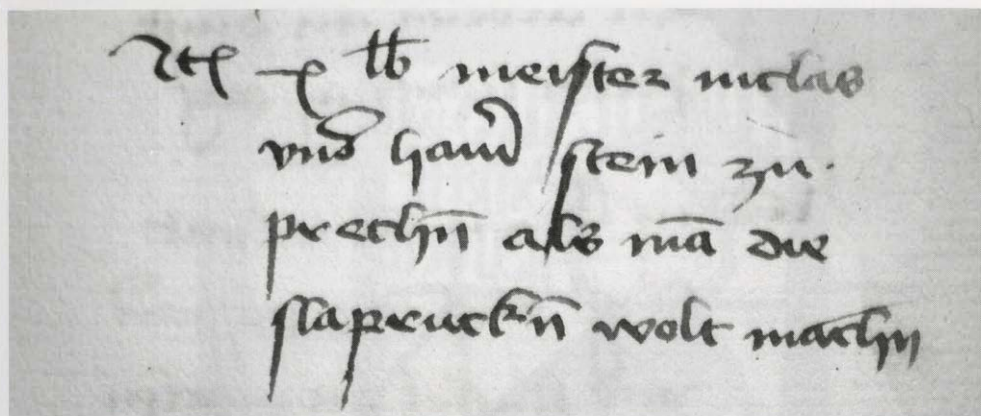 Itē x lb meister niclas
vnd hañs stein zu
prechñ als mā die
slapruckñ wolt machñ